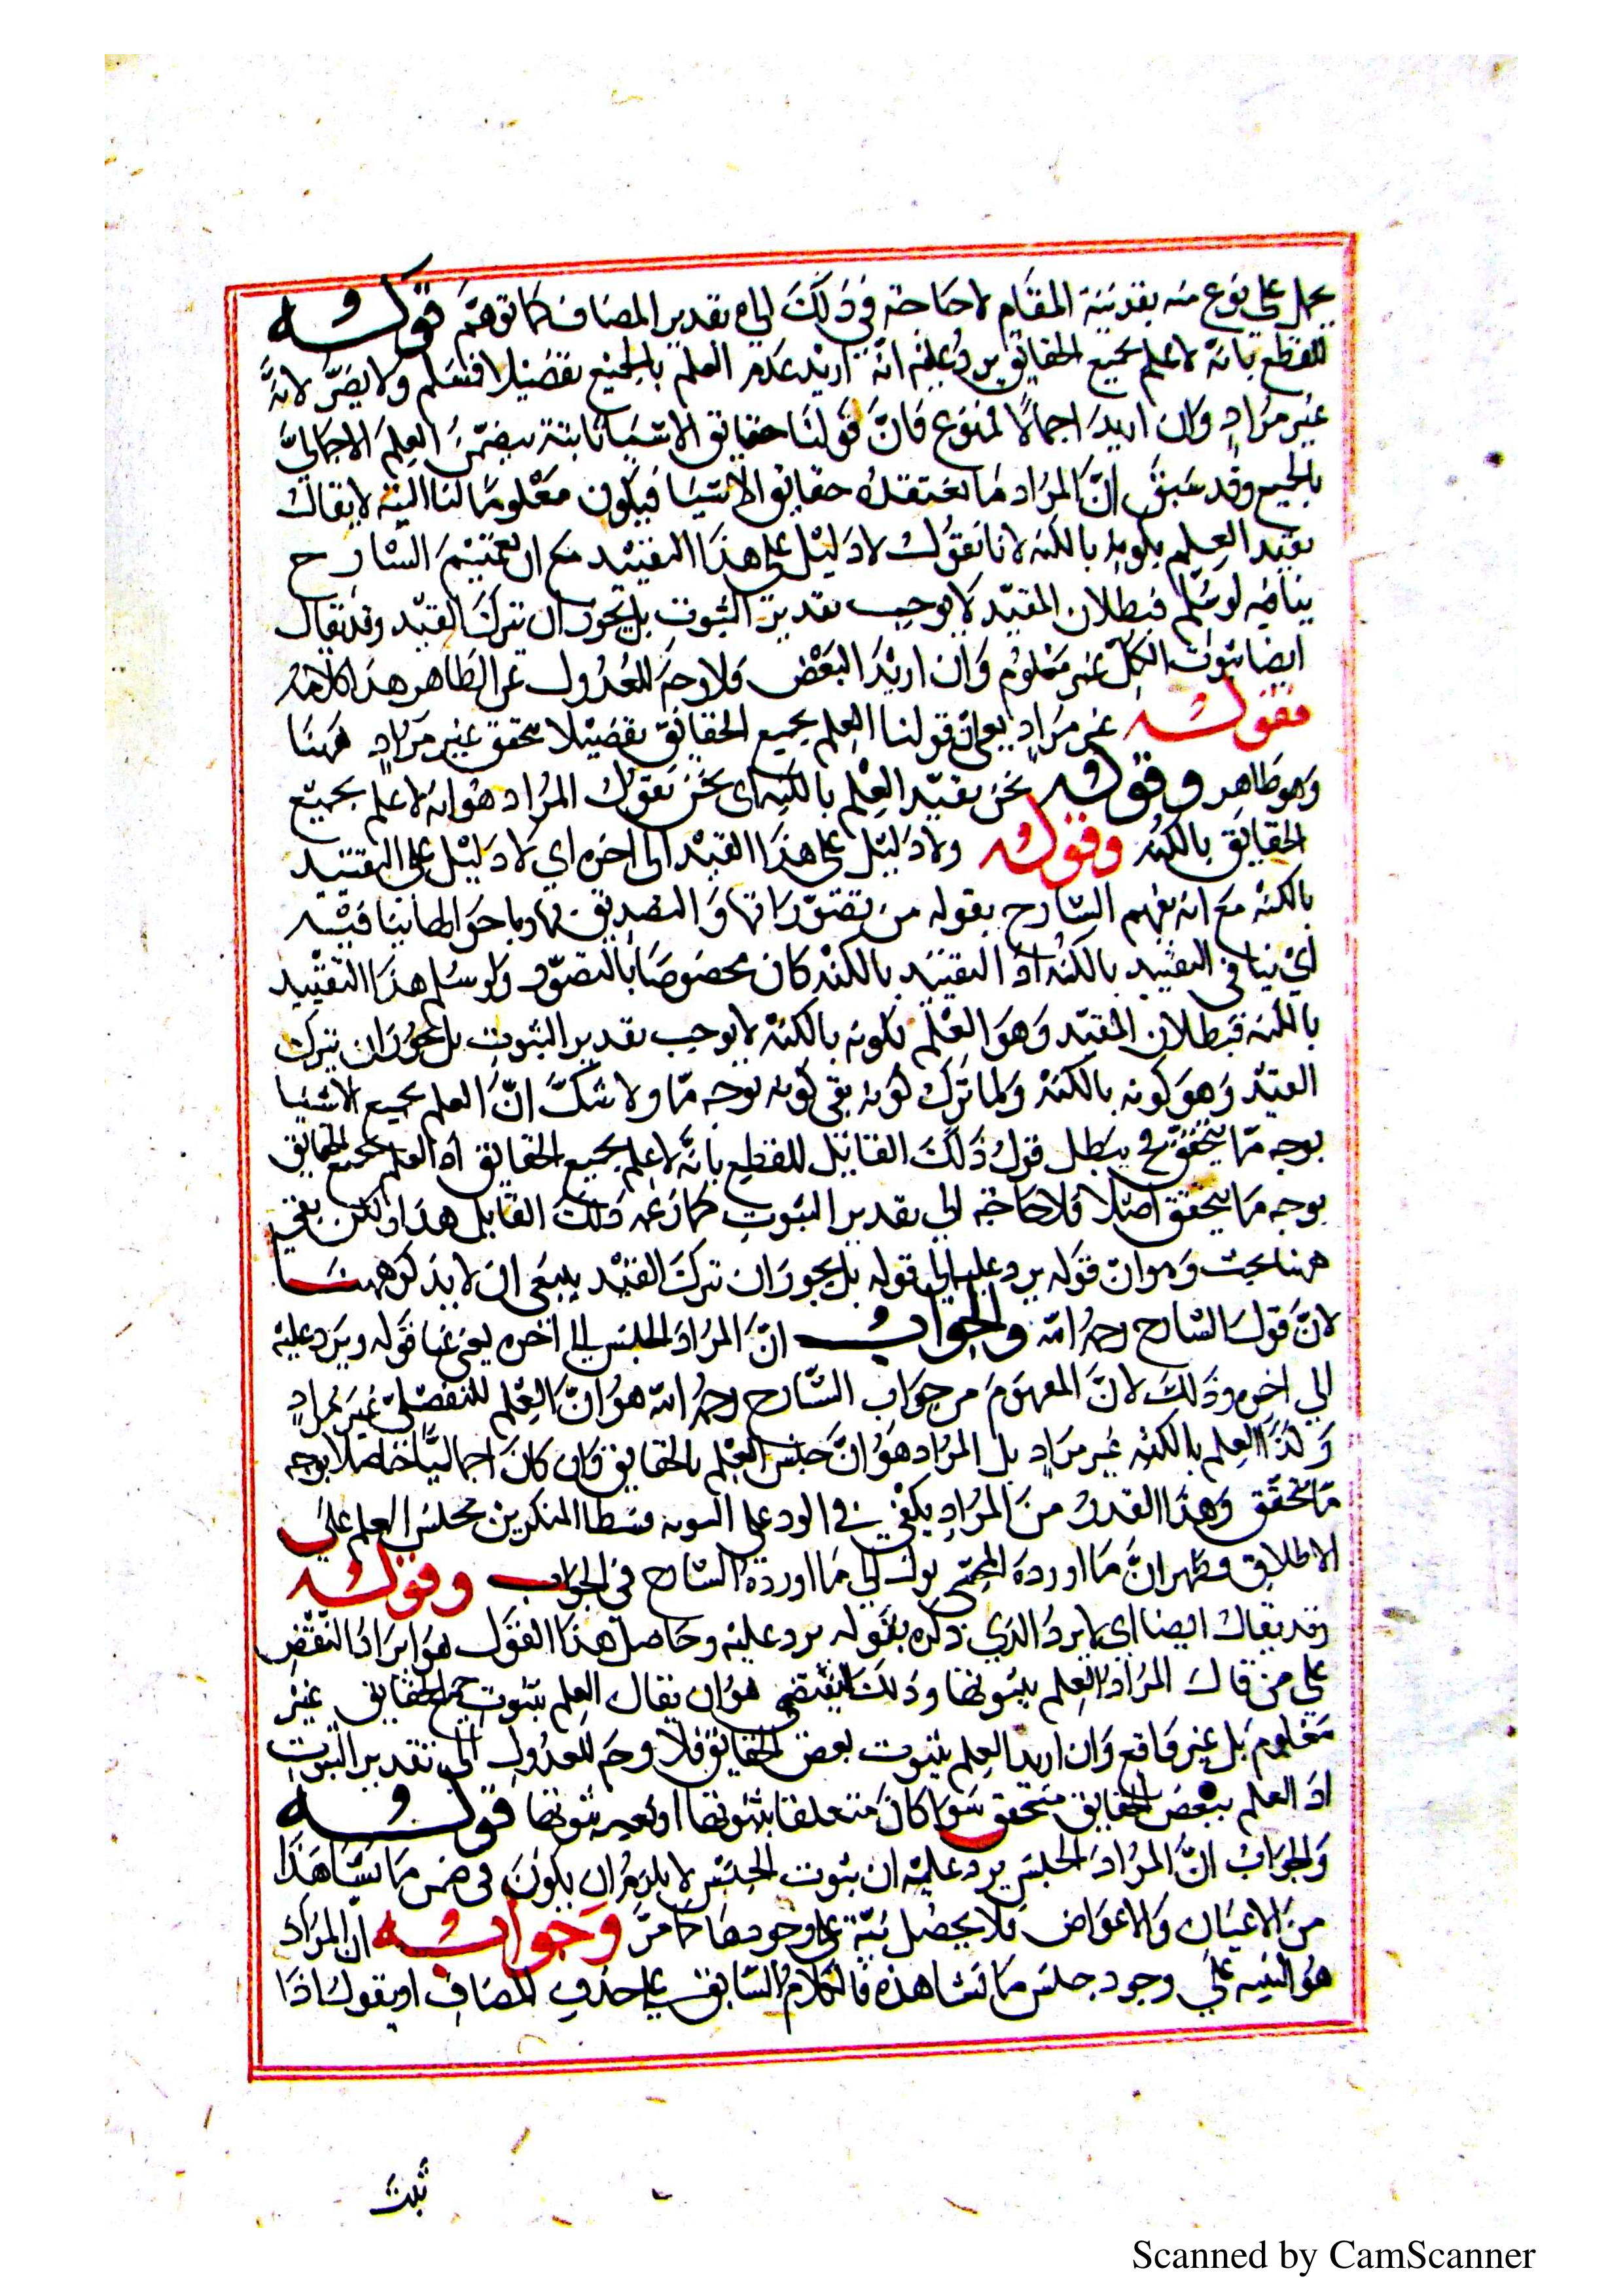 يحمل على نوع منه بقرينة المقام لا حاجة في ذلك الى تقدير المضاف كما توهم قوله
للقطع بانه لا علم بجميع الحقائق يرد عليه انه اريد عدم العلم بالجميع تفصيلا فمسلم ولا يضر لانه
غير مراد وان اريد اجمالا فممنوع فان قولنا حقايق الاشيا ثابتة يتضمن العلم الاجمالي
بالجميع وقد سبق ان المراد ما نعتقده حقايق الاشيا فيكون معلوما لنا البتة لا يقال
نقيد العلم بكونه بالكنه لانا نقول لا دليل على هذا التقييد مع ان تعميم الشارح
ينافيه لو سلم فبطلان المقيد لا يوجب تقدير الثبوت بل يجوز ان نترك القيد وقد يقال
ايضا ثبوت الكل غير معلوم وان اريد البعض فلا وجه للعدول عن الظاهر هذا كلامه
فقوله غير مراد يعني ان قولنا العلم بجميع الحقائق تفصيلا متحقق غير مراد ههنا
وهو ظاهر وقوله نحن نقيد العلم بالكنه اى نحن نقول المراد هو انه لا علم بجميع
الحقايق بالكنه وقوله ولا دليل على هذا القيد الى اخره اي لا دليل على التقييد
بالكنه مع انه تعميم الشارح بقوله من تصوراتها والتصديق بها وباحوالها ينافيه
اي ينافي التقييد بالكنه اذ التقييد بالكنه كان مخصوصا بالتصور ولو سلم هذا التقييد
بالكنه فبطلان المقيد وهو العلم بكونه بالكنه لا يوجب تقدير الثبوت بل يجوز ان نترك
القيد وهو كونه بالكنه ولما ترك كونه بقى كونه بوجه ما ولا شك ان العلم بجميع الاشيا
بوجه ما يتحقق فح يبطل قول ذلك القائل للقطع بانه لا علم بجميع الحقايق اذ العلم بجميع الحقايق
بوجه ما يتحقق اصلا فلا حاجة الي تقدير الثبوت كما زعمه ذلك القايل هذا ولكن بقي
ههنا بحث وهو ان قوله يرد عليه الي قوله بل يجوز ان نترك القيد ينبغى ان لا يذكر ههنا
لان قول الشارح رحمه الله والجواب ان المراد الجنس الي اخره يغني عنها قوله ويرد عليه
الي اخره وذلك لان المفهوم من جواب الشارح رحمه الله هو ان العلم التفصيلي غير مراد
وكذا العلم بالكنه غير مراد بل المراد هو ان جنس العلم بالحقايق وان كان اجماليا حاصلا بوجه
ما متحقق وهذا القدر من المراد يكفي في الرد على المنكرين بجنس العلم على
الاطلاق فظهر ان ما اورده المحشي يؤل الي ما اورده الشارح في الجواب وقوله
وقد يقال ايضا اى يرد الذي ذكره بقوله يرد عليه وحاصل هذا القول هو ايراد النقض
علي من قال المراد العلم بثبوتها وذلك النقض هو ان يقال العلم بثبوت جميع الحقايق غير
معلوم بل غير واقع وان اريد العلم بثبوت بعض الحقايق فلا وجه للعدول الى تقدير الثبوت
اذ العلم ببعض الحقايق متحقق سوا كان متعلقا بثبوتها او بغير ثبوتها قوله
والجواب ان المراد الجنس يرد عليه ان ثبوت الجنس لا يلزم ان يكون في ضمن ما نشاهد
من الاعيان والاعراض فلا يحصل تنبيه على وجودها كما مر وجوابه ان المراد
هو التنبيه علي وجود جنس ما نشاهده فالكلام السابق علي حذف المضاف او يقول اذا
ثبت
Scanned by CamScanner